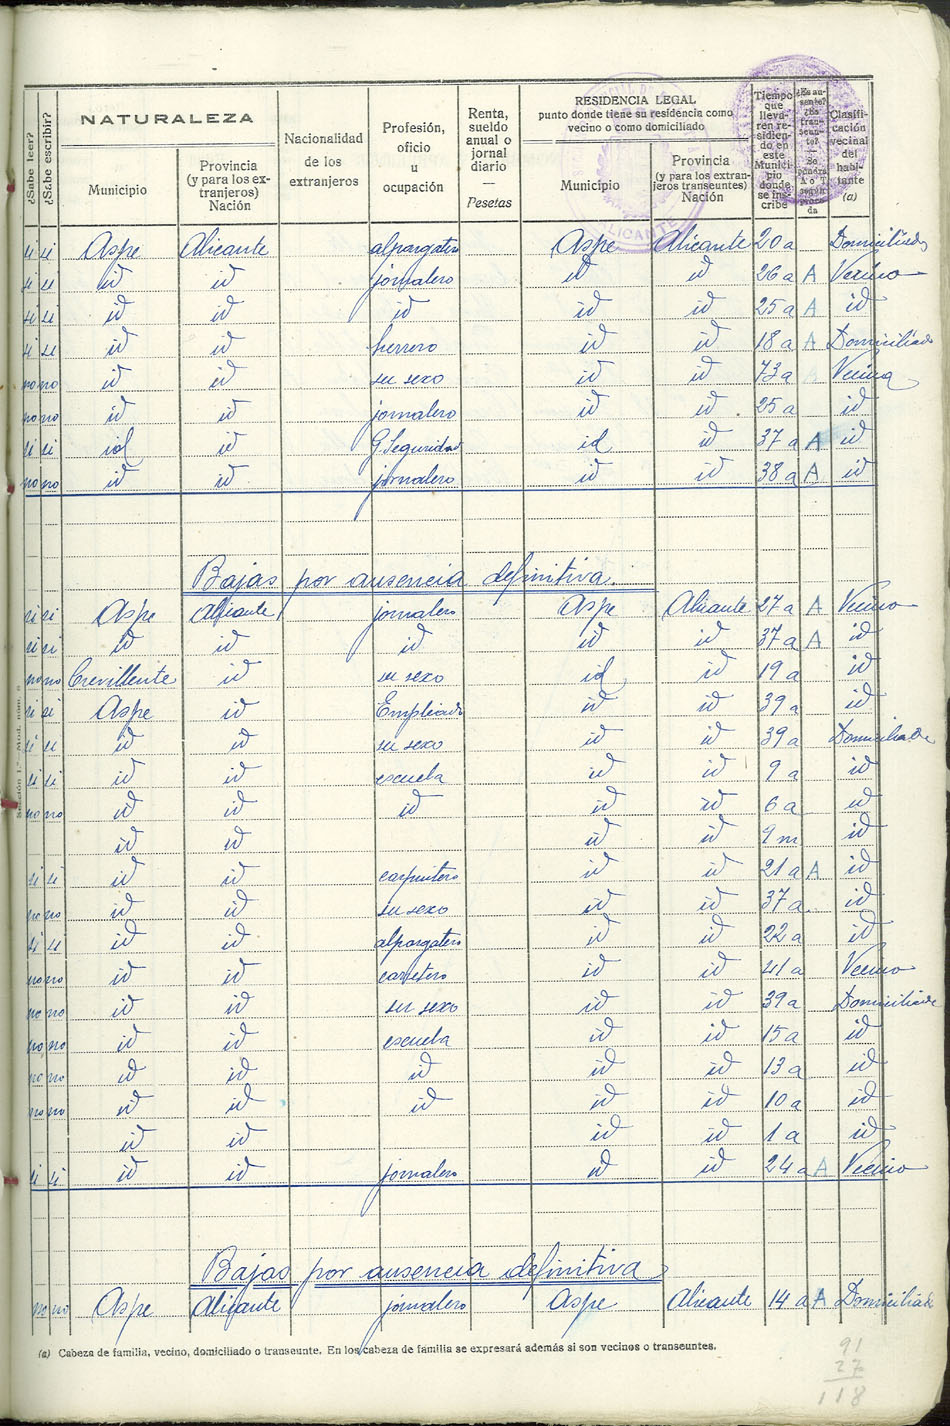 ¿Sabe leer? ¿Sabe escribir? NATURALEZA Municipio Provincia (y para los extranjeros) Nación Nacionalidad de los extranjeros Profesión, oficio u ocupación Renta, sueldo anual o jornal diario — Pesetas RESIDENCIA LEGAL punto donde tiene su residencia como vecino o como domiciliado Municipio Provincia (y para los extranjeros transeuntes) Nación Tiempo que llevaren residiendo en este Municipio donde se inscribe Clasificación vecinal del habitante (a)
si si Aspe Alicante alpargatero Aspe Alicante 20 a Domiciliado
si si id id jornalero id id 26 a A Vecino
si si id id id id id 25 a A id
si si id id herrero id id 18 a A Domiciliado
no no id id su sexo id id 73 a A Vecina
no no id id jornalero id id 25 a id
si si id id G. Seguridad id id 37 a A id
no no id id jornalero id id 38 a A id
Bajas por ausencia definitiva.
si si Aspe Alicante jornalero Aspe Alicante 27 a A Vecino
si si id id id id id 37 a A id
no no Crevillente id su sexo id id 19 a id
si si Aspe id Empleado id id 39 a id
si si id id su sexo id id 39 a Domiciliada
si si id id escuela id id 9 a id
no no id id id id id 6 a id
id id id id 9 m id
si si id id carpintero id id 21 a A id
no no id id su sexo id id 37 a. id
si si id id alpargatero id id 22 a id
no no id id carretero id id 41 a Vecino
no no id id su sexo id id 39 a Domiciliada
no no id id escuela id id 15 a id
no no id id id id id 13 a id
no no id id id id id 10 a id
id id id id 1 a id
si si id id jornalero id id 24 a A Vecino
Bajas por ausencia definitiva
no no Aspe Alicante jornalero Aspe Alicante 14 a A Domiciliado
(a) Cabeza de familia, vecino, domiciliado o transeunte. En los cabeza de familia se expresará además si son vecinos o transeuntes.
91
27
118